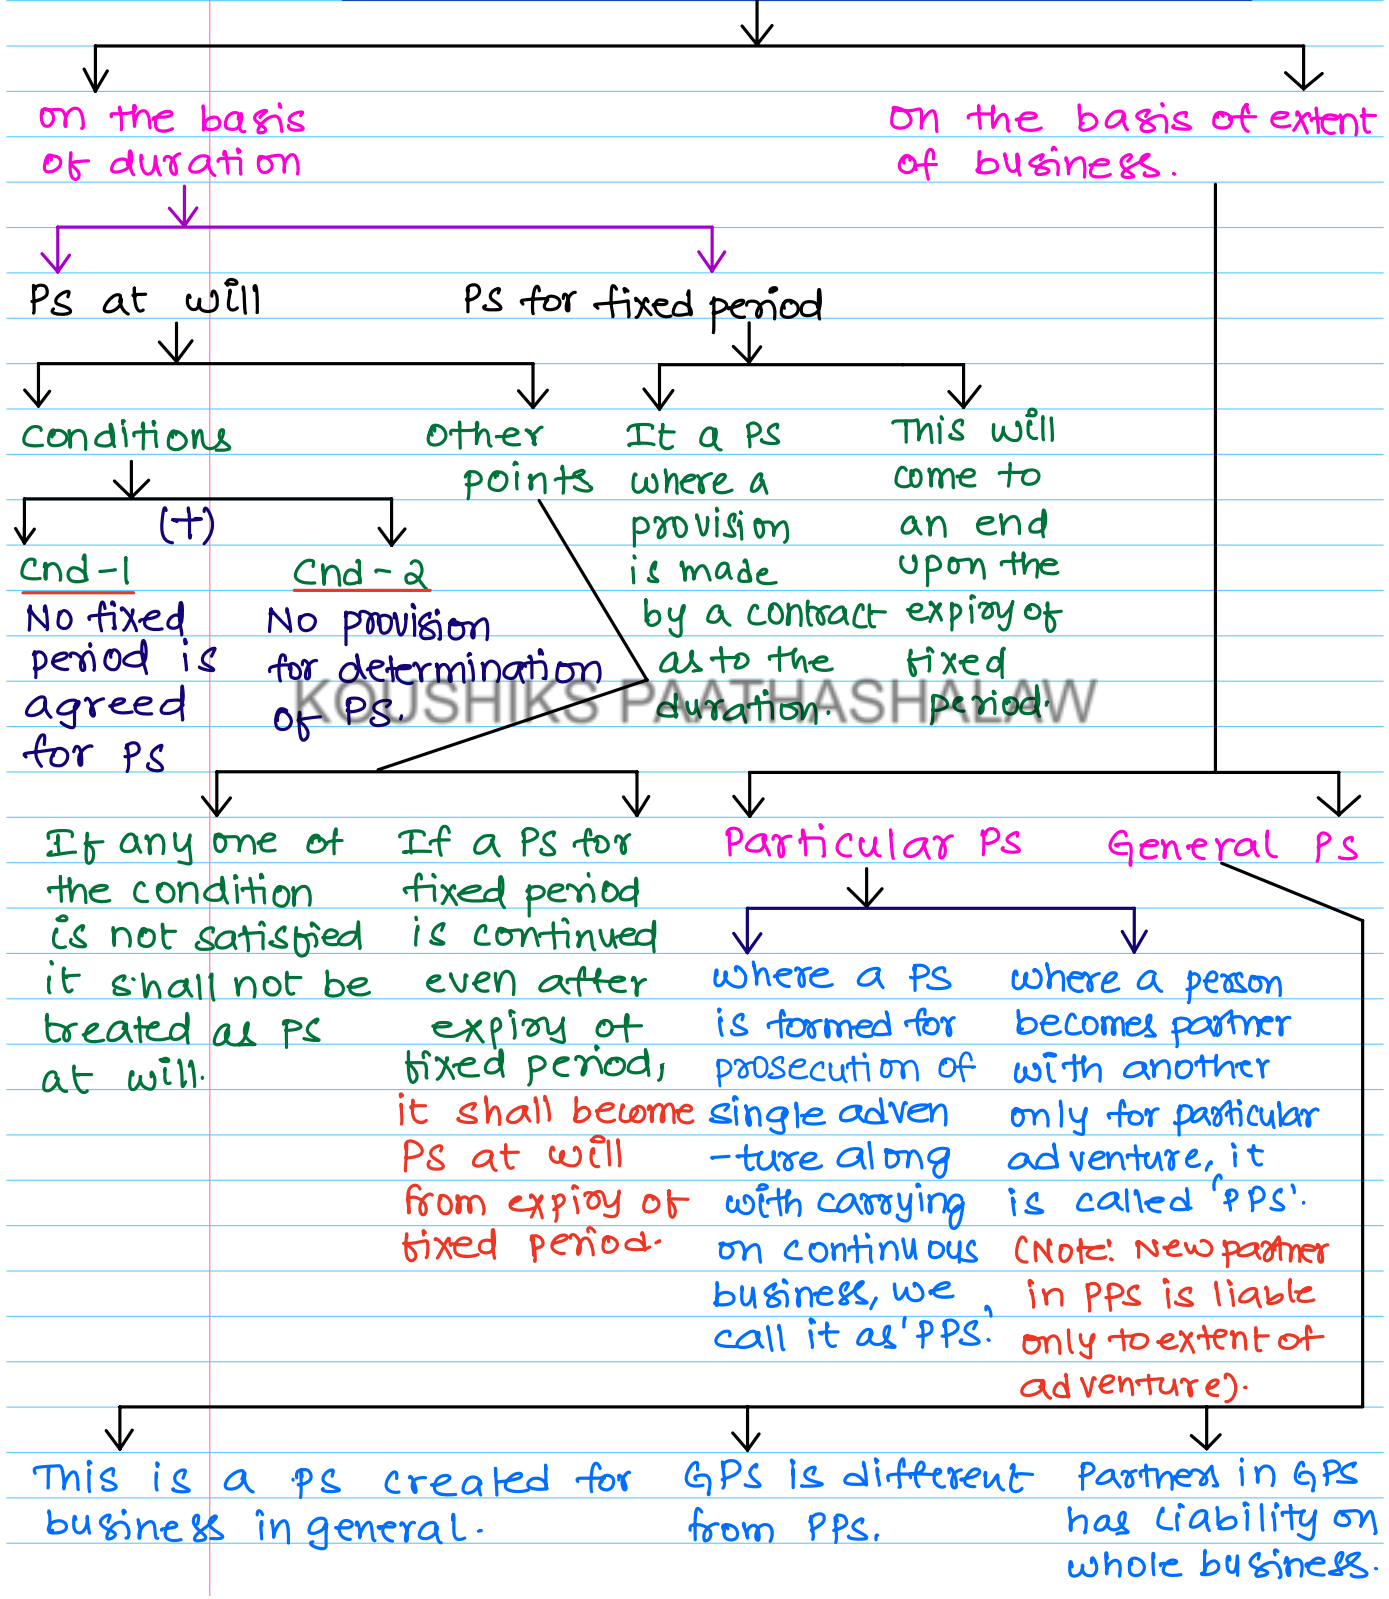 on the basis
of duration
on the basis of extent
of business.
PS at will
PS for fixed period
conditions
other
points
It a PS
where a
provision
is made
by a contract
as to the
duration.
This will
come to
an end
upon the
expiry of
fixed
period.
(+)
Cnd-1
No fixed
period is
agreed
for PS
Cnd-2
No provision
for determination
of PS.
KOUSHIKS PAATHASHALAW
If any one of
the condition
is not satisfied
it shall not be
treated as PS
at will.
If a PS for
fixed period
is continued
even after
expiry of
fixed period,
it shall become
PS at will
from expiry of
fixed period.
Particular PS
General PS
where a PS
is formed for
prosecution of
single adven
-ture along
with carrying
on continuous
business, we
call it as 'PPS.'
where a person
becomes partner
with another
only for particular
adventure, it
is called 'PPS'.
(Note: New partner
in PPS is liable
only to extent of
adventure).
This is a PS created for
business in general.
GPS is different
from PPS.
Partners in GPS
has Liability on
whole business.